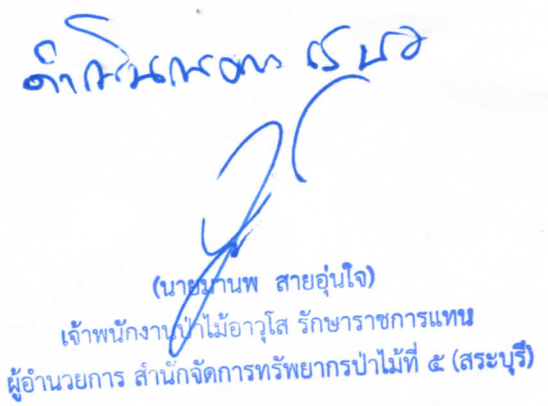 ดำเนินการตามระเบียบ
(นายมานพ สายอุ่นใจ)
เจ้าพนักงานป่าไม้อาวุโส รักษาราชการแทน
ผู้อำนวยการ สำนักจัดการทรัพยากรป่าไม้ที่ ๕ (สระบุรี)